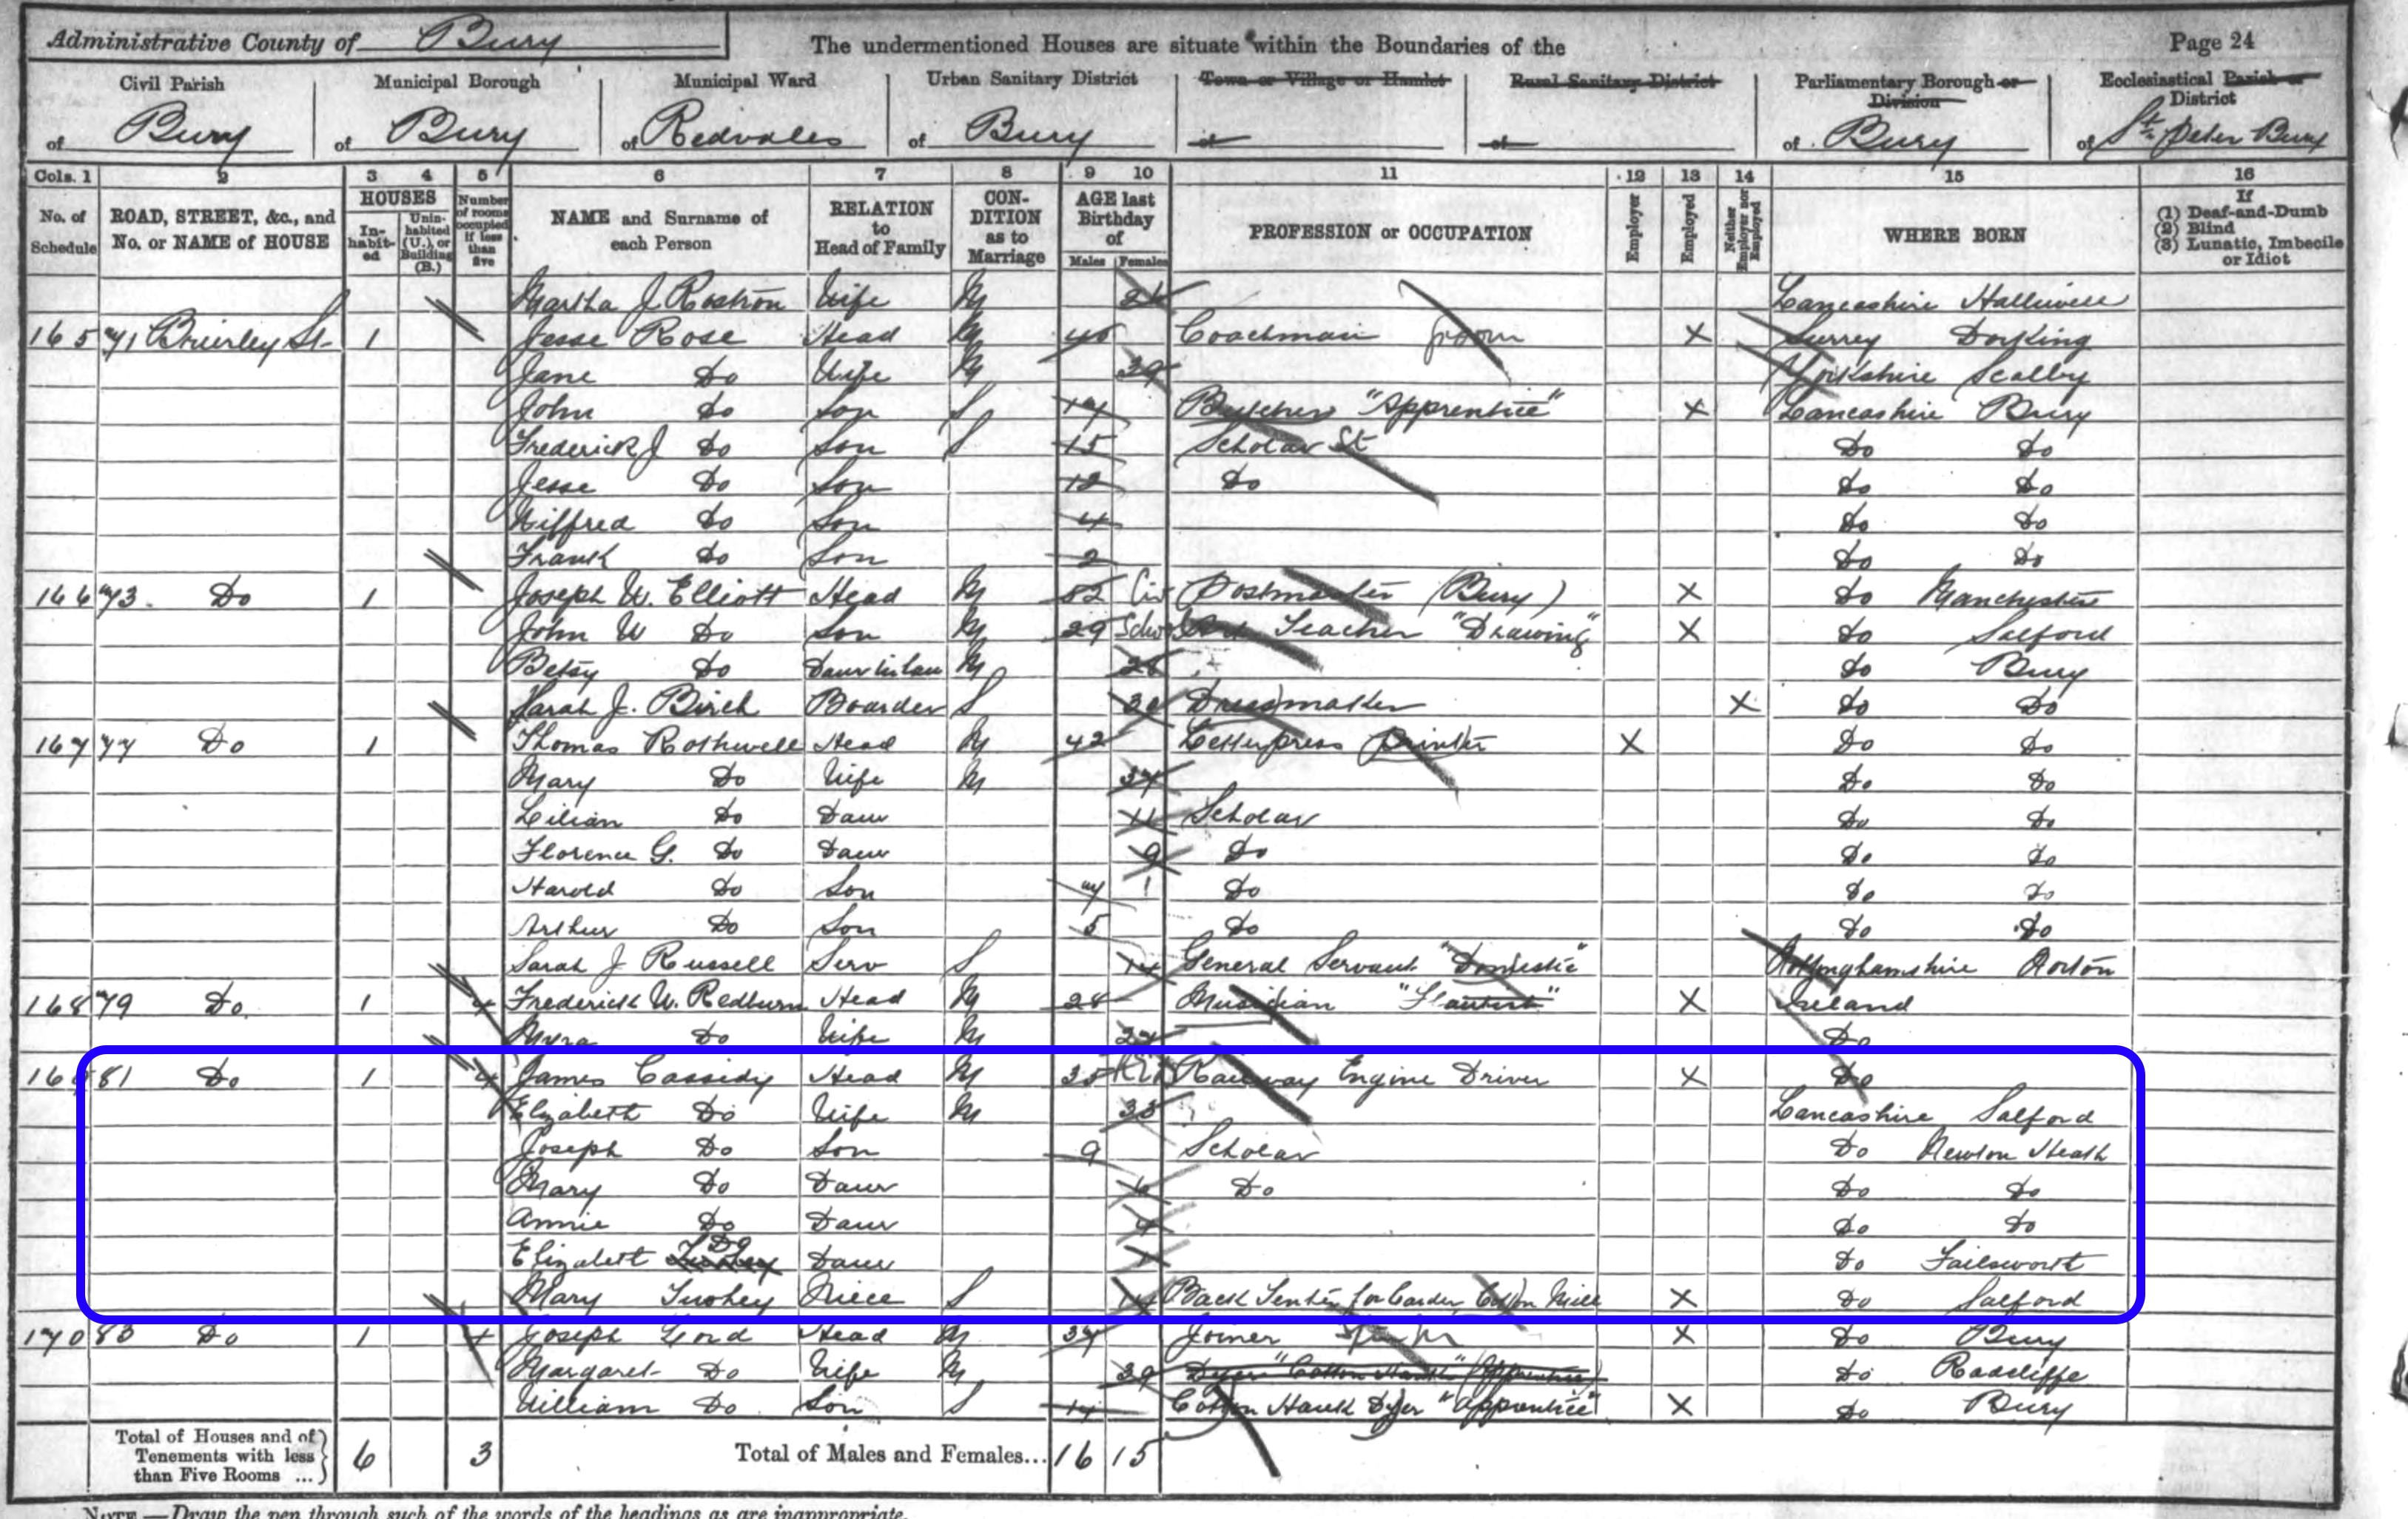 Administrative County of Bury The undermentioned Houses are situate within the Boundaries of the Page 24
Civil Parish Municipal Borough Municipal Ward Urban Sanitary District Town or Village or Hamlet Rural Sanitary District Parliamentary Borough or Division Ecclesiastical Parish or District
of Bury of Bury of Redvales of Bury of of of Bury of St. Peter Bury
Cols. 1 2 3 4 5 6 7 8 9 10 11 12 13 14 15 16
No. of Schedule ROAD, STREET, &c., and No. or NAME of HOUSE HOUSES In-habit-ed Unin-habited (U.), or Building (B.) Number of rooms occupied if less than five NAME and Surname of each Person RELATION to Head of Family CON-DITION as to Marriage AGE last Birthday of Males Females PROFESSION or OCCUPATION Employer Employed Neither Employer nor Employed WHERE BORN If (1) Deaf-and-Dumb (2) Blind (3) Lunatic, Imbecile or Idiot
Martha J. Rostron Wife M Lancashire Halliwell
165 71 Brierley St. 1 Jesse Rose Head M 40 Coachman groom X Surrey Dorking
Jane Do Wife M 39 Yorkshire Scalby
John Do Son S Butcher "Apprentice" X Lancashire Bury
Frederick J Do Son S 15 Scholar St Do Do
Jesse Do Son 12 Do Do Do
Do Son 4 Do Do
Frank Do Son 2 Do Do
166 73. Do 1 Joseph W. Elliott Head M 52 Civ Postmaster (Bury) X Do Manchester
John W Do Son M 29 Teacher "Drawing" X Do Salford
Betsy Do Daur in law M 28 Do Bury
Sarah J. Birch Boarder S 30 Dressmaker X Do Do
167 77 Do 1 Thomas Rothwell Head M 42 Letterpress Printer X Do Do
Mary Do Wife M 37 Do Do
Lilian Do Daur 11 Scholar Do Do
Florence G. Do Daur 9 Do Do Do
Harold Do Son 7 Do Do Do
Arthur Do Son 5 Do Do Do
Sarah J Russell Serv S General Servant "Domestic" Nottinghamshire
168 79 Do 1 4 Frederick W. Redburn Head M 28 Musician "Flautist" X Ireland
Myra Do Wife M Do
169 81 Do 1 4 James Cassidy Head M 35 Railway Engine Driver X Do
Elizabeth Do Wife M 33 Lancashire Salford
Joseph Do Son 9 Scholar Do Newton Heath
Mary Do Daur Do Do Do
Annie Do Daur 4 Do Do
Elizabeth Do Daur 1 Do Failsworth
Mary Tuohey Niece S Back Tenter for Carder, Cotton Mill X Do Salford
170 83 Do 1 4 Joseph Lord Head M 37 Joiner X Do Bury
Margaret Do Wife M 39 Dyer "Cotton Hank" (Apprentice) Do Radcliffe
William Do Son S Cotton Hank Dyer "Apprentice" X Do Bury
Total of Houses and of Tenements with less than Five Rooms ... 6 3 Total of Males and Females... 16 15
NOTE.—Draw the pen through such of the words of the headings as are inappropriate.